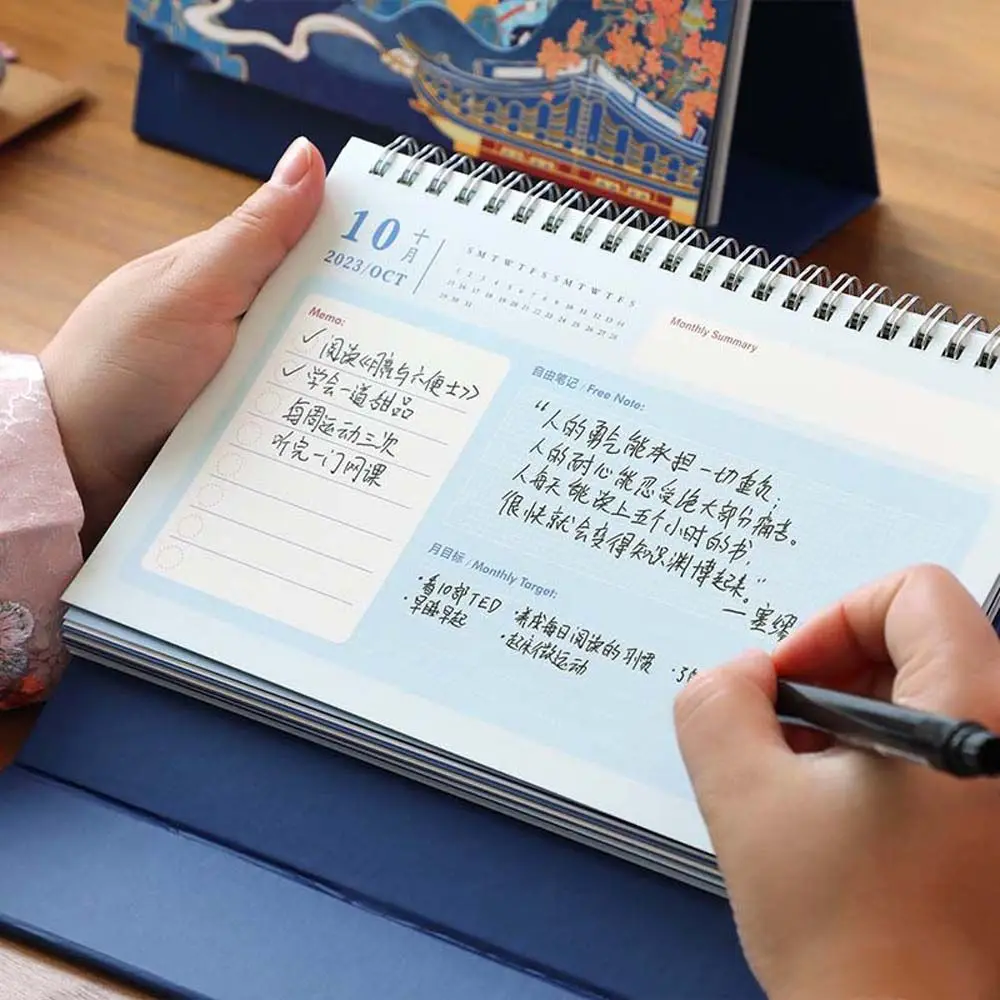 10 十月
2023/OCT
S M T W T F S S M T W T F S
1 2 3 4 5 6 7 8 9 10 11 12 13 14
15 16 17 18 19 20 21 22 23 24 25 26 27 28
29 30 31
Memo:
✓ 阅读《月亮与六便士》
✓ 学会一道甜品
每周运动三次
听完一门网课
Monthly Summary
自由笔记 / Free Note:
“人的勇气能承担一切重负；
人的耐心能忍受绝大部分痛苦。
人每天能读上五个小时的书，
很快就会变得知识渊博起来。”
—塞缪
月目标 / Monthly Target:
·看10部TED ·养成每日阅读的习惯
·早睡早起 ·起床做运动